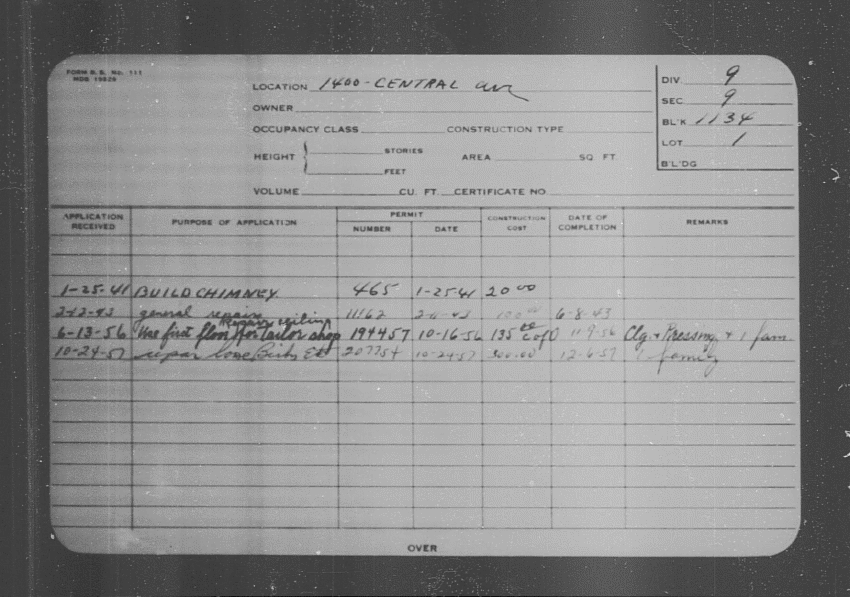 FORM B. S. No. 111
MDB 19829
LOCATION 1400 - CENTRAL ave
DIV. 9
OWNER
SEC 9
OCCUPANCY CLASS CONSTRUCTION TYPE
BL'K 1134
HEIGHT STORIES AREA SQ FT.
LOT 1
FEET
B'L'DG
VOLUME CU. FT. CERTIFICATE NO.
APPLICATION RECEIVED PURPOSE OF APPLICATION PERMIT NUMBER DATE CONSTRUCTION COST DATE OF COMPLETION REMARKS
1-25-41 BUILD CHIMNEY 465 1-25-41 20 00
2-12-43 general repairs 11162 100 00 6-8-43
Repair ceiling
6-13-56 Use first floor for tailor shop 194457 10-16-56 135 00 C of O 11-9-56 Clg. & Pressing & 1 fam.
10-24-57 repair loose Bricks Etc 207754 10-24-57 300.00 12-6-57 1 family
OVER